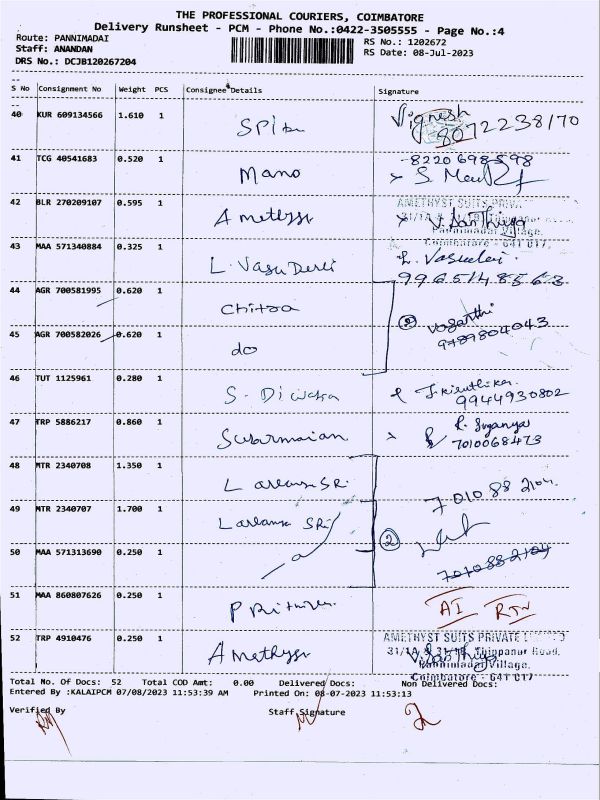 THE PROFESSIONAL COURIERS, COIMBATORE
Delivery Runsheet - PCM - Phone No.:0422-3505555 - Page No.:4
Route: PANNIMADAI
Staff: ANANDAN
DRS No.: DCJB120267204
RS No.: 1202672
RS Date: 08-Jul-2023
S No Consignment No Weight PCS Consignee Details Signature
40 KUR 609134566 1.610 1 Vignesh
8072238170
41 TCG 40541683 0.520 1 Mano 8220698598
42 BLR 270209107 0.595 1 Amethyst AMETHYST SUITS
Pannimadai Village,
Coimbatore - 641 017
43 MAA 571340884 0.325 1 L. Vasu Devi L. Vasudevi
9965148563
44 AGR 700581995 0.620 1 Chitra vasanthi
9789804043
45 AGR 700582026 0.620 1 do
46 TUT 1125961 0.280 1 S. Diwakar
9944930802
47 TRP 5886217 0.860 1 R. Suganya
7010068473
48 MTR 2340708 1.350 1
7010882104
49 MTR 2340707 1.700 1
2
50 MAA 571313690 0.250 1
7010882104
51 MAA 860807626 0.250 1 AI RTN
52 TRP 4910476 0.250 1 Amethyst AMETHYST SUITS PRIVATE
31/1A & 31/1B, Thippanur Road,
Pannimadai Village,
Coimbatore - 641 017
Total No. Of Docs: 52 Total COD Amt: 0.00 Delivered Docs: Non Delivered Docs:
Entered By :KALAIPCM 07/08/2023 11:53:39 AM Printed On: 08-07-2023 11:53:13
Verified By Staff Signature